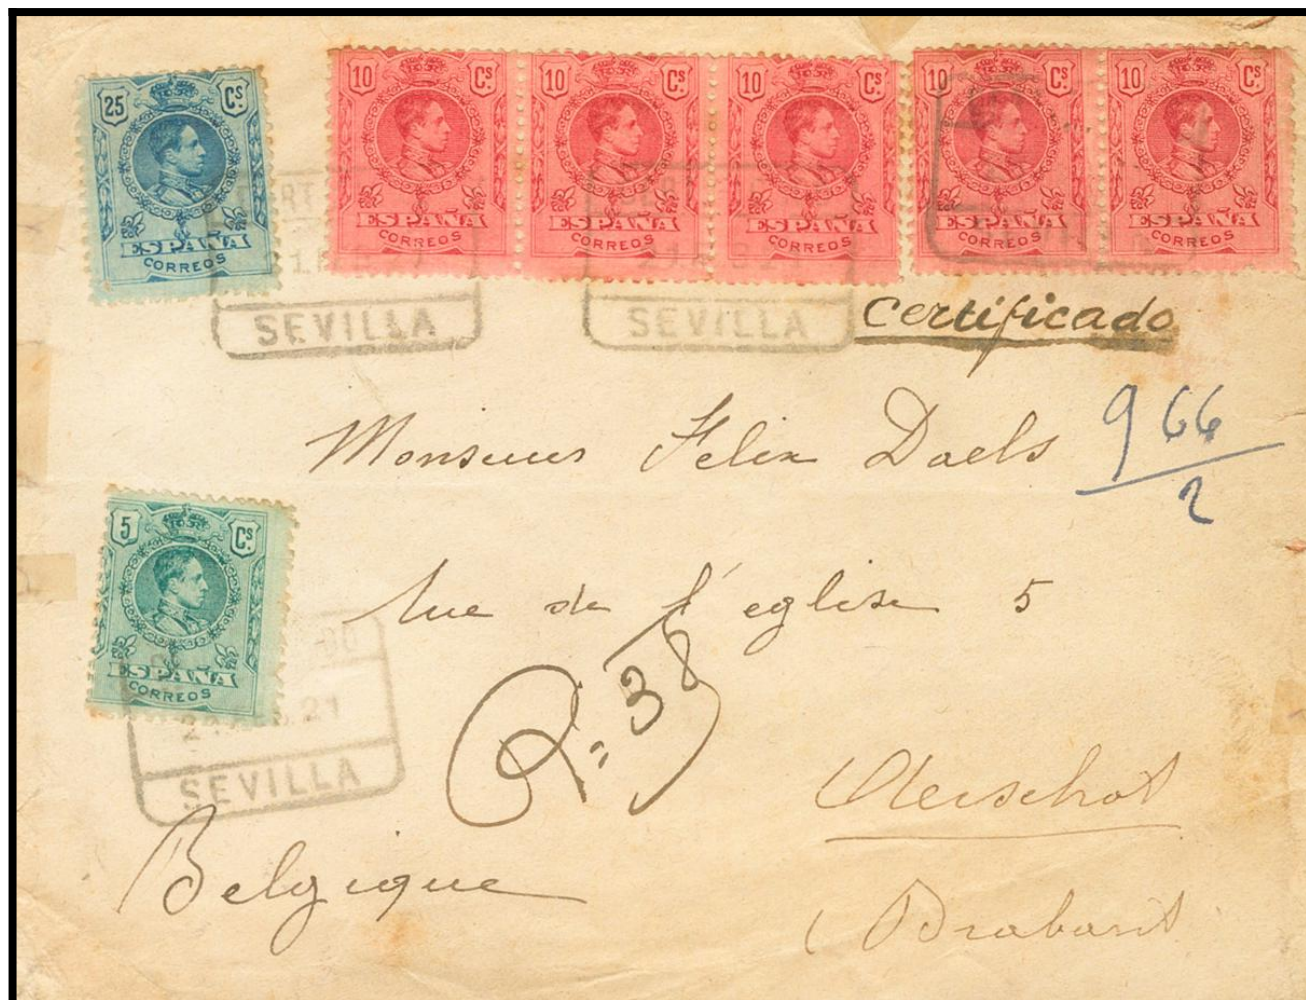 25 Cs.
ESPAÑA
CORREOS
10 Cs.
ESPAÑA
CORREOS
10 Cs.
ESPAÑA
CORREOS
10 Cs.
ESPAÑA
CORREOS
10 Cs.
ESPAÑA
CORREOS
10 Cs.
ESPAÑA
CORREOS
SEVILLA
SEVILLA
Certificado
Monsieur Felix Daels
966
2
5 Cs.
ESPAÑA
CORREOS
Rue de l'eglise 5
R=38
21
SEVILLA
Aerschot
Belgique
(Brabant